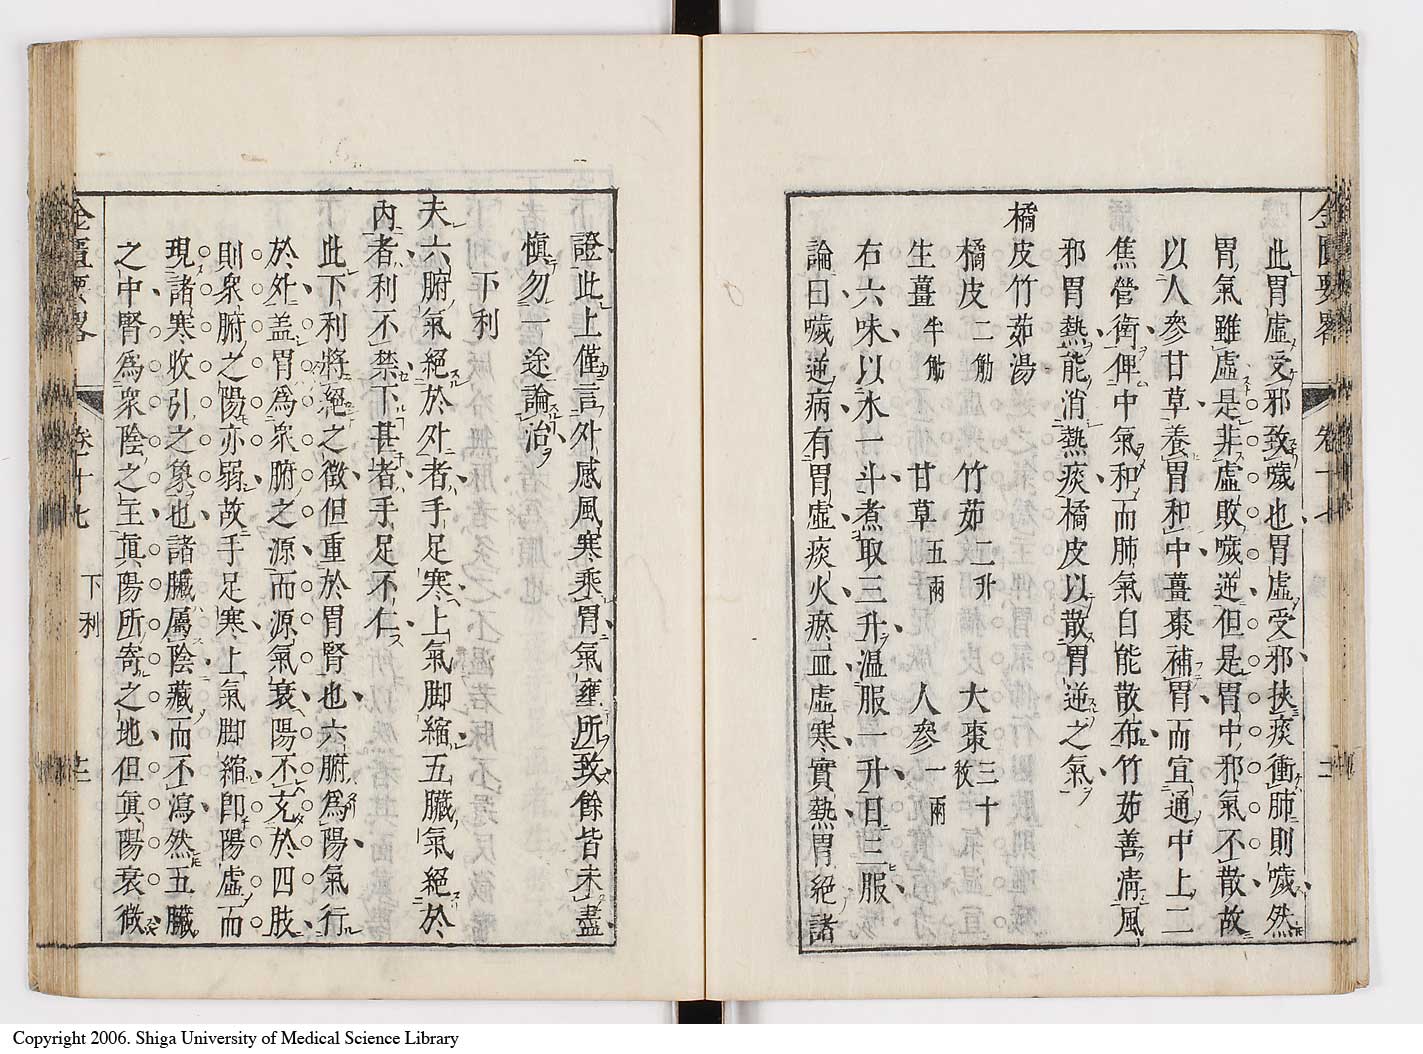 此胃虛受邪致噦也胃虛受邪挾痰衝肺則噦然
胃氣雖虛是非虛敗噦逆但是胃中邪氣不散故
以人參甘草養胃和中薑棗補胃而宣通中上二
焦營衛俾中氣和而肺氣自能散布竹茹善清風
邪胃熱能消熱痰橘皮以散胃逆之氣
橘皮竹茹湯
橘皮二觔 竹茹二升 大棗三十枚
生薑半觔 甘草五兩 人參一兩
右六味以水一斗煮取三升温服一升日三服
論曰噦逆病有胃虛痰火瘀血虛寒實熱胃絕諸
證此上僅言外感風寒乘胃氣壅所致餘皆未盡
愼勿一途論治
下利
夫六腑氣絕於外者手足寒上氣脚縮五臟氣絕於
內者利不禁下甚者手足不仁
此下利將絕之徵但重於胃腎也六腑爲陽氣行
於外盖胃爲衆腑之源而源氣衰陽不充於四肢
則衆腑之陽亦弱故手足寒上氣脚縮卽陽虛而
現諸寒收引之象也諸臟屬陰藏而不瀉然五臟
之中腎爲衆陰之主眞陽所寄之地但眞陽衰微
金匱要畧 卷十七 下利 十二
Copyright 2006. Shiga University of Medical Science Library